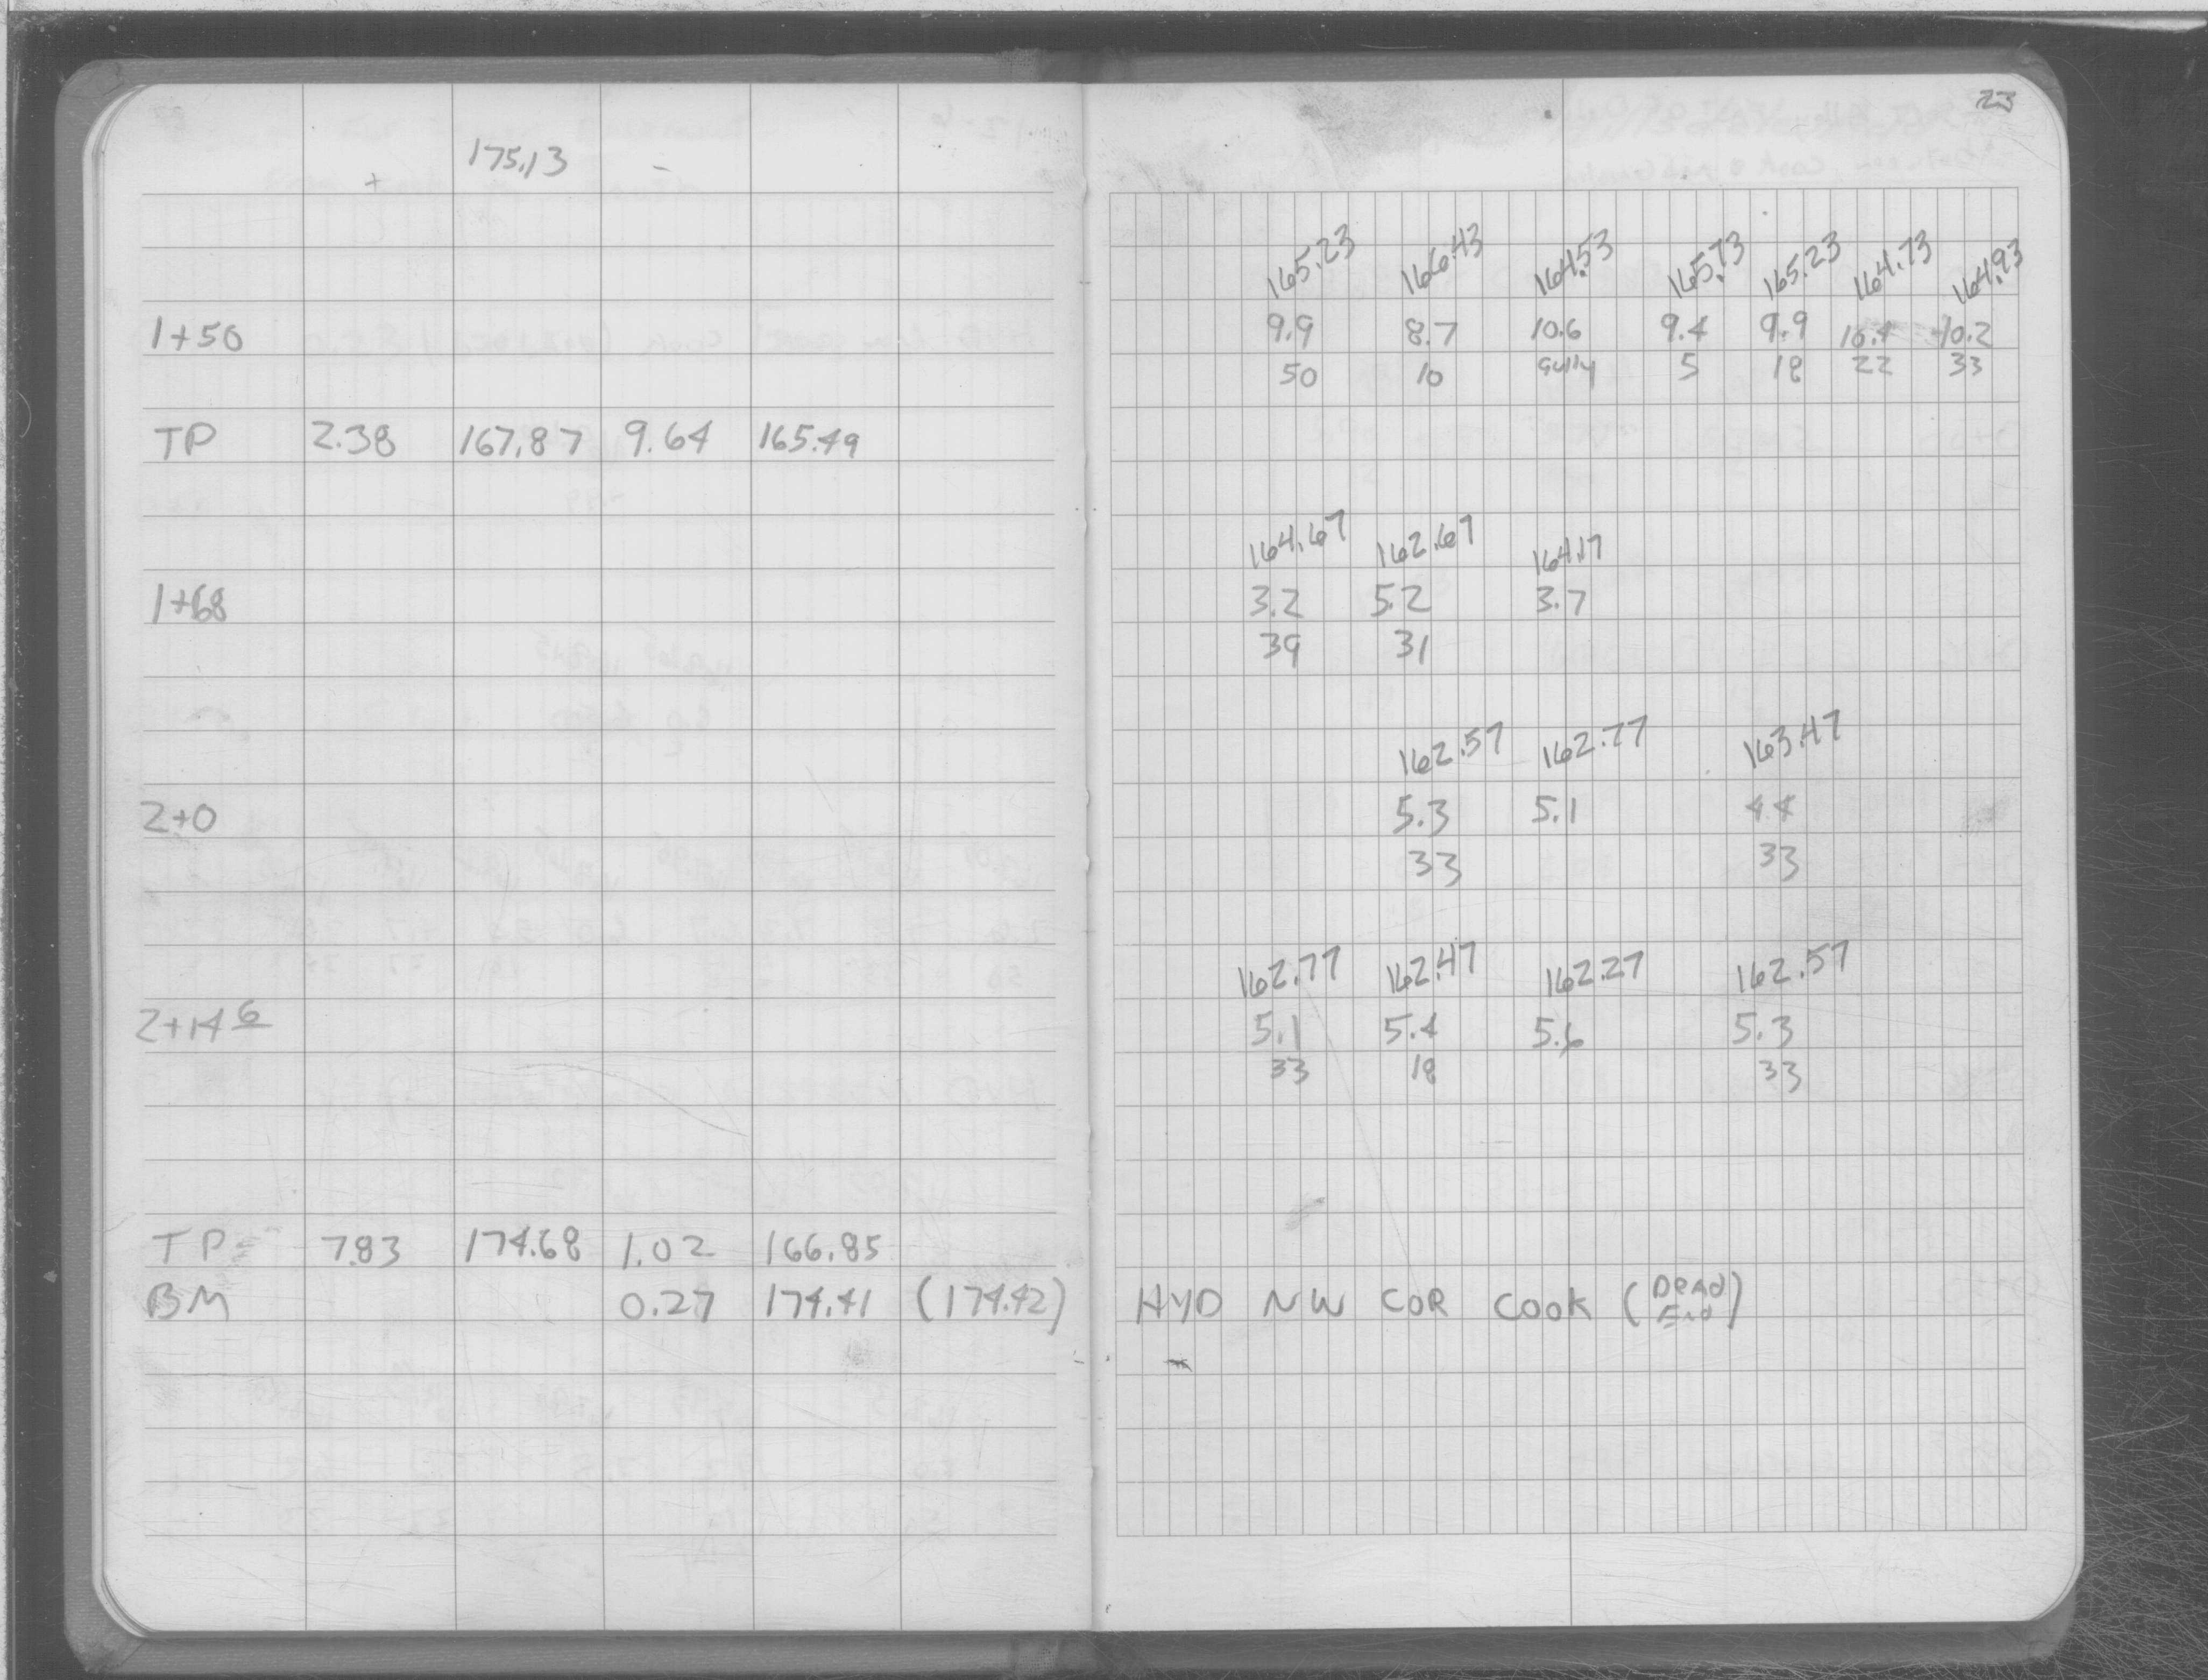 23
+ 175.13 -
165.23 166.43 164.53 165.73 165.23 164.73 164.93
1+50 9.9 8.7 10.6 9.4 9.9 10.4 10.2
50 10 Gully 5 18 22 33
TP 2.38 167.87 9.64 165.49
164.67 162.67 164.17
1+68 3.2 5.2 3.7
39 31
162.57 162.77 163.47
2+0 5.3 5.1 4.4
33 33
162.77 162.47 162.27 162.57
2+14 6 5.1 5.4 5.6 5.3
33 18 33
TP 7.83 174.68 1.02 166.85
BM 0.27 174.41 (174.42) HYD NW COR COOK (Dead End)